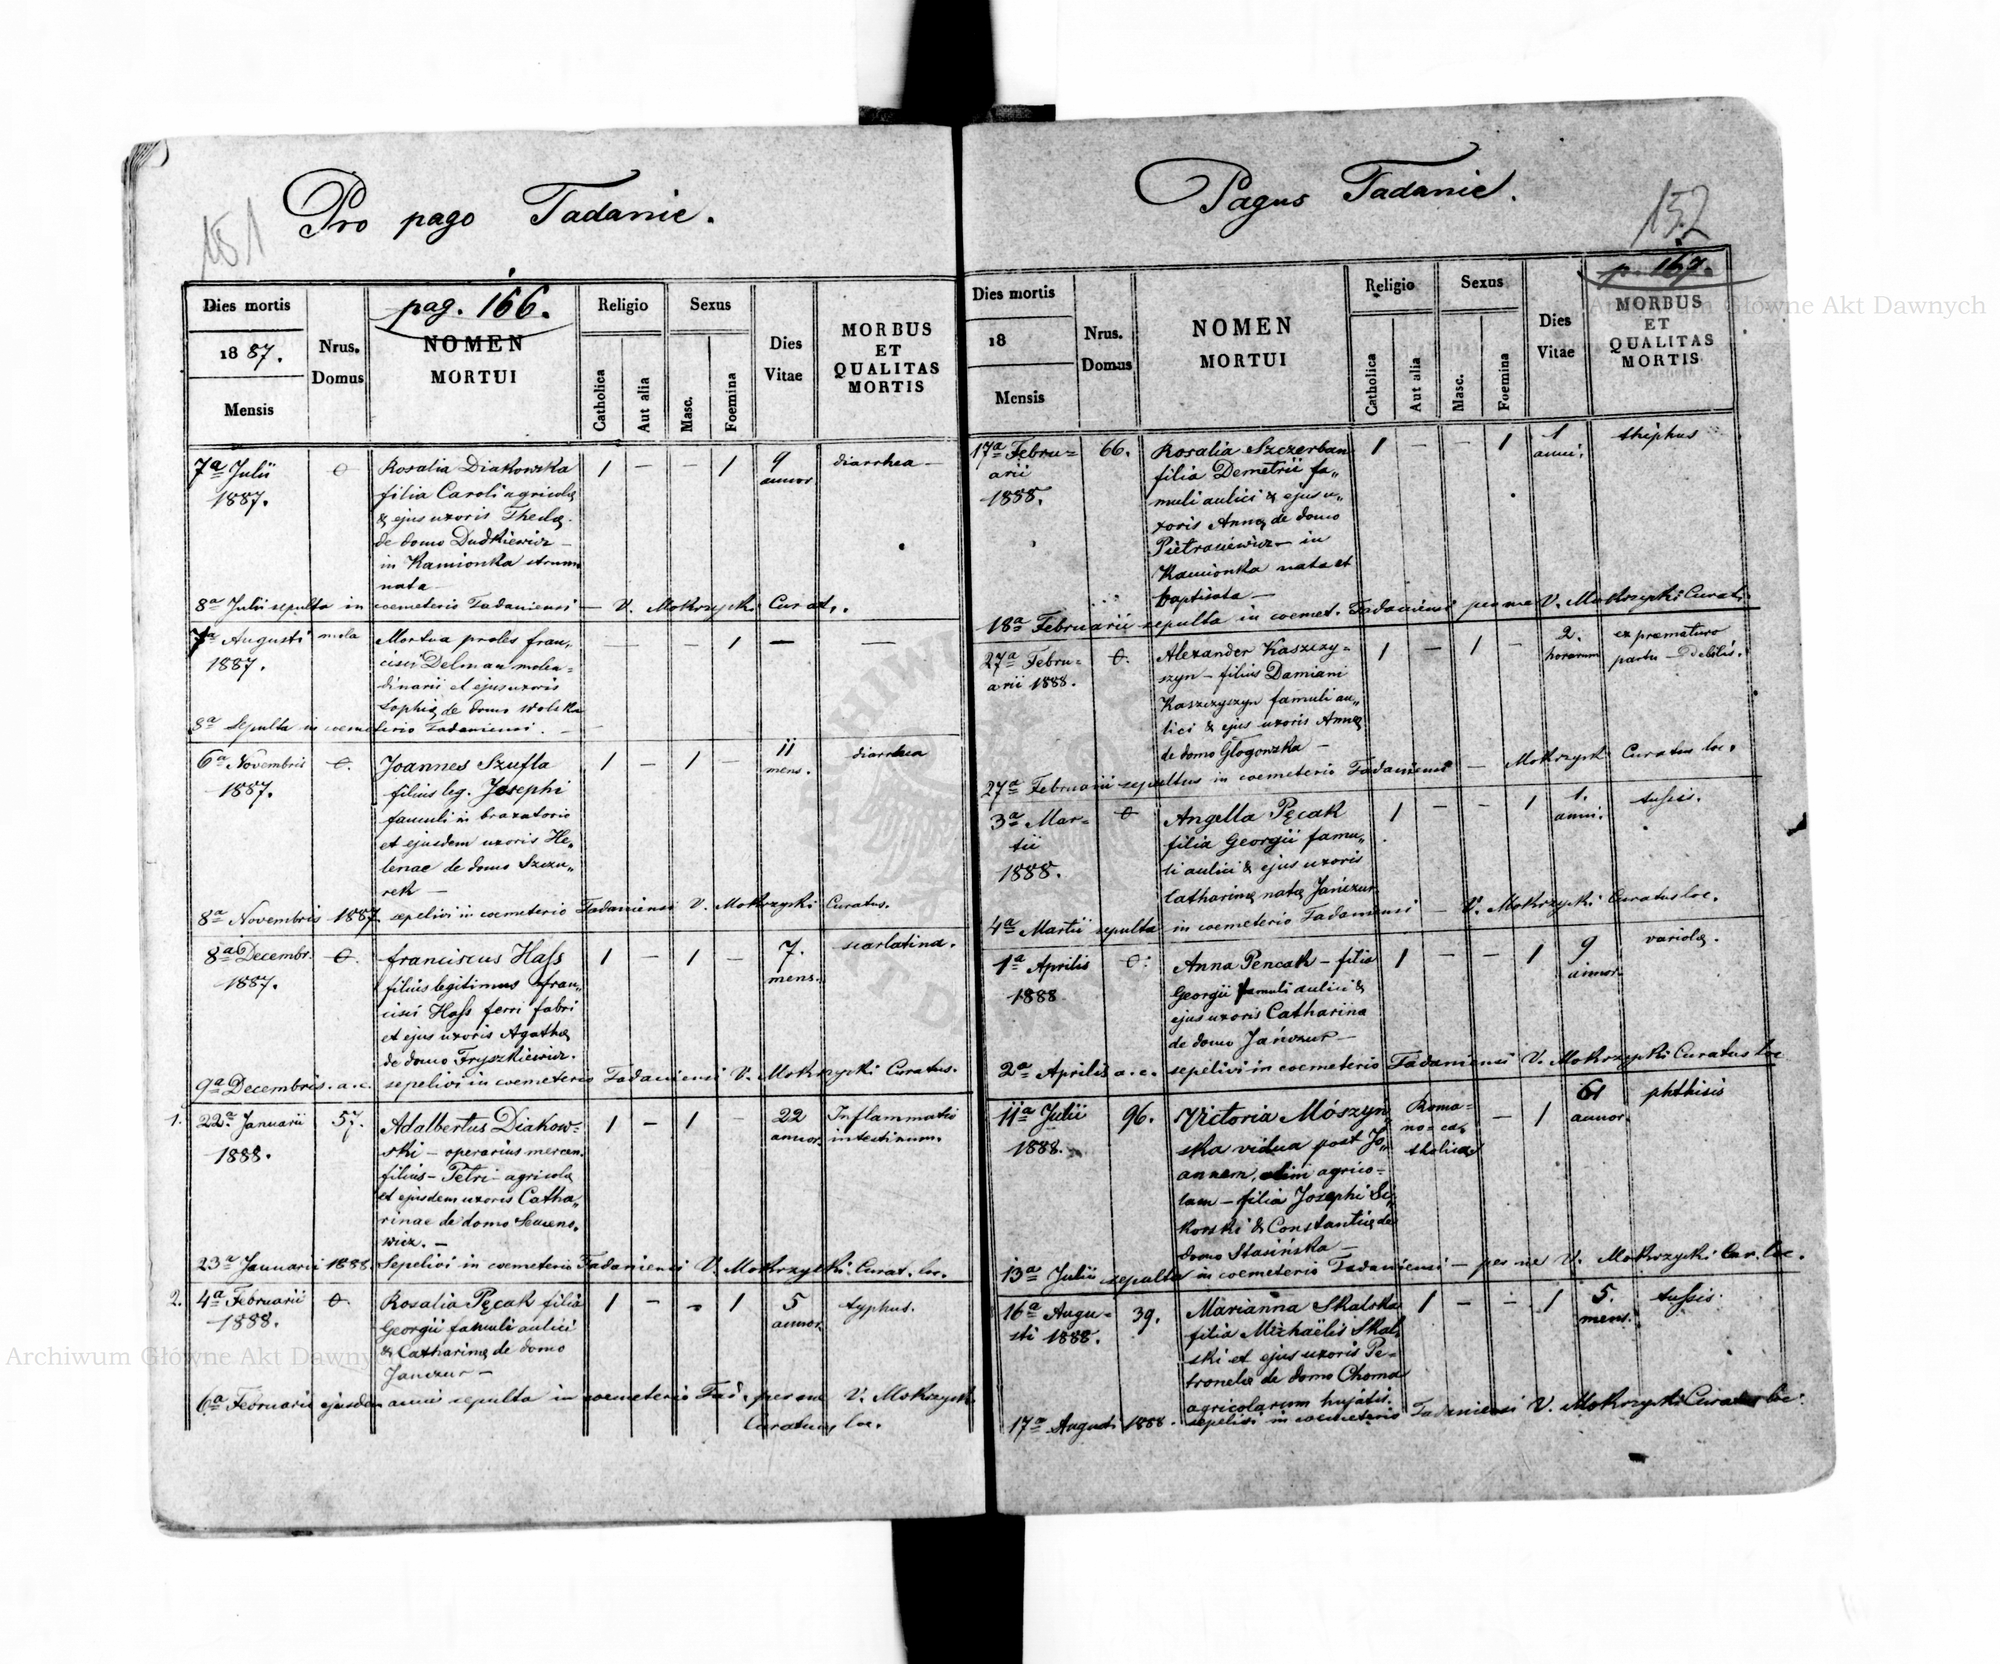 151
Pro pago Tadanie.
Dies mortis
1887.
Mensis
Nrus.
Domus
pag. 166.
NOMEN
MORTUI
Religio
Catholica
Aut alia
Sexus
Masc.
Foemina
Dies
Vitae
MORBUS
ET
QUALITAS
MORTIS
7a Julii 0 Rosalia Diakowska 1 — — 1 9 diarrhea —
1887. filia Caroli agricolæ annor.
& ejus uxoris Theclæ
de domo Dudkiewicz —
in Kamionka strum
nata —
8a Julii sepulta in coemeterio Tadaniensi — V. Mokrzycki Curat.
7a Augusti mola Mortua proles fran„ — — — 1 — —
1887. cisci Delman molen=
dinarii et ejus uxoris
Sophiæ de domo Wolska
8a Sepulta in coemeterio Tadaniensi. —
6a Novembris 0. Joannes Szufla 1 — 1 — 11 diarrhea
1887. filius leg. Josephi mens.
famuli in braxatorio
et ejusdem uxoris He„
lenae de domo Szczu„
rek —
8a Novembris 1887 sepelivi in coemeterio Tadaniensi V. Mokrzycki Curatus.
8a Decembr. 0. franciscus Hass 1 — 1 — 7. scarlatina.
1887. filius legitimus fran„ mens.
cisci Hass ferri fabri
et ejus uxoris Agathæ
de domo Fryszkiewicz.
9a Decembris. a.c. sepelivi in coemeterio Tadaniensi V. Mokrzycki Curatus.
1. 22a Januarii 57. Adalbertus Diakow= 1 — 1 — 22 Inflammatio
1888. ski — operarius mercen. annor. intestinum.
filius — Petri — agricolæ
et ejusdem uxoris Catha„
rinae de domo
wicz. —
23a Januarii 1888. Sepelivi in coemeterio Tadaniensi V. Mokrzycki. Curat. loc.
2. 4a Februarii 0. Rosalia Pęcak filia 1 — — 1 5 typhus.
1888. Georgii famuli aulici annor.
& Catharinæ de domo
Janczur —
6a Februarii ejusdem anni sepulta in coemeterio Tad. per me V. Mokrzycki
Curatum loc.
152
Pagus Tadanie.
Dies mortis
18
Mensis
Nrus.
Domus
NOMEN
MORTUI
Religio
Catholica
Aut alia
Sexus
Masc.
Foemina
Dies
Vitae
p. 167.
MORBUS
ET
QUALITAS
MORTIS
17a Febru= 66. Rosalia Szczerban 1 — — 1 1 thiphus
arii filia Demetrii fa„ anni.
1888. muli aulici & ejus u„
xoris Annæ de domo
Pietrasiewicz — in
Kamionka nata et
baptisata —
18a Februarii sepulta in coemet. Tadaniensi per me V. Mokrzycki Curat.
27a Febru= 0. Alexander Kaszczy= 1 — 1 — 2. ex præmaturo
arii 1888. szyn — filius Damiani horarum partu — debilis.
Kaszczyszyn famuli au„
lici & ejus uxoris Annæ
de domo Głogowska —
27a Februarii sepultus in coemeterio Tadaniensi — Mokrzycki Curatus loc.
3a Mar= 0 Angella Pęcak 1 — — 1 1. tussis.
tii filia Georgii famu„ anni.
1888. li aulici & ejus uxoris
Catharinæ natæ Jańczur
4a Martii sepulta in coemeterio Tadaniensi — V. Mokrzycki Curatus loc.
1a Aprilis 0. Anna Pencak — filia 1 — — 1 9 variolæ.
1888 Georgii famuli aulici & annor.
ejus uxoris Catharina
de domo Jańczur —
2a Aprilis a.c. sepelivi in coemeterio Tadaniensi V. Mokrzycki Curatus loc
11a Julii 96. Victoria Mószyn„ Roma= — 1 61 phthisis
1888. ska vidua post Jo„ no=ca„ annor.
annem, olim agrico= tholica
lam — filia Josephi Si„
korski & Constantiæ de
domo Stasińska —
13a Julii sepulta in coemeterio Tadaniensi — per me V. Mokrzycki Cur. loc.
16a Augu= 39. Marianna Skalska 1 — — 1 5. tussis.
sti 1888. filia Michaëlis Skal„ mens.
ski et ejus uxoris Pe=
tronelæ de domo Choma
agricolarum hujatis.
17a Augusti 1888. sepelivi in coemeterio Tadaniensi V. Mokrzycki Curatus loc.
Archiwum Główne Akt Dawnych
Archiwum Główne Akt Dawnych